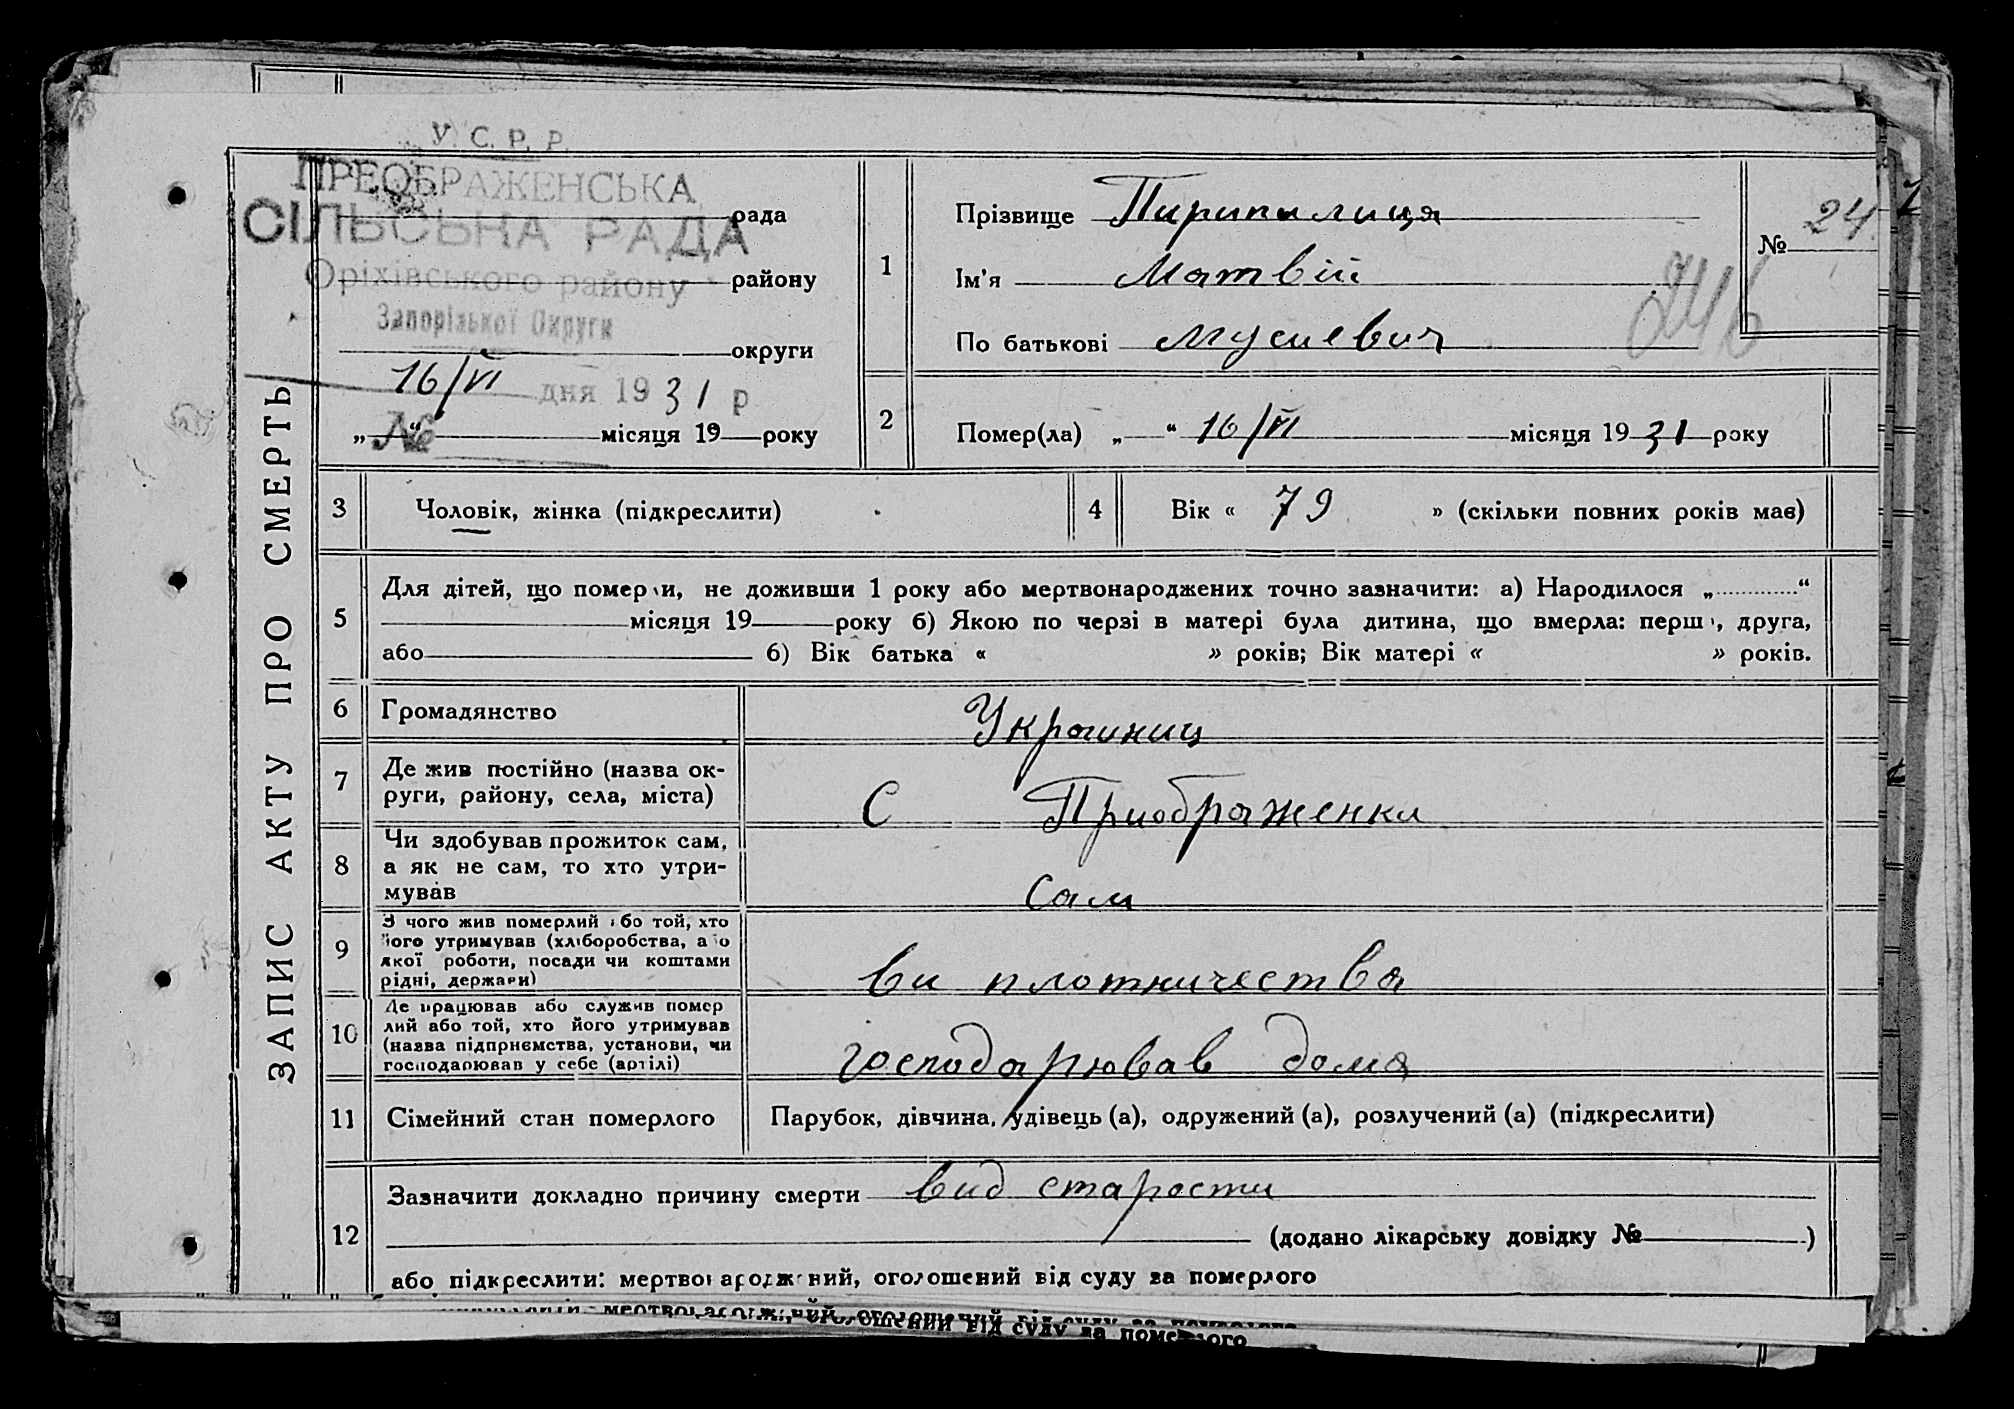 У. С. Р. Р.
ПРЕОБРАЖЕНСЬКА
СІЛЬСЬКА РАДА
рада
Оріхівського району
району
Запорізької Округи
округи
16/VI дня 1931 р
№
„ “ місяця 19 року
ЗАПИС АКТУ ПРО СМЕРТЬ
1
Прізвище Пирипилиця
Ім'я Матвій
По батькові Мусиевич
№ 24
246
2 Помер(ла) „ “ 16/VI місяця 1931 року
3 Чоловік, жінка (підкреслити)
4 Вік « 79 » (скільки повних років має)
5
Для дітей, що померли, не доживши 1 року або мертвонароджених точно зазначити: а) Народилося „ “
місяця 19 року б) Якою по черзі в матері була дитина, що вмерла: перша, друга,
або б) Вік батька « » років; Вік матері « » років.
6 Громадянство Украиниц
7 Де жив постійно (назва ок-
руги, району, села, міста)
С Приображенка
8 Чи здобував прожиток сам,
а як не сам, то хто утри-
мував
Сам
9 З чого жив померлий або той, хто
його утримував (хліборобства, або
якої роботи, посади чи коштами
рідні, держави)
ви плотничества
10 Де працював або служив помер
лий або той, хто його утримував
(назва підприємства, установи, чи
господарював у себе (артілі)
господарював дома
11 Сімейний стан померлого Парубок, дівчина, удівець (а), одружений (а), розлучений (а) (підкреслити)
12 Зазначити докладно причину смерти вид старости
(додано лікарську довідку № )
або підкреслити: мертвонароджений, оголошений від суду за померлого
мертвонароджений, оголошений від суду за померлого
оголошений від суду за померлого